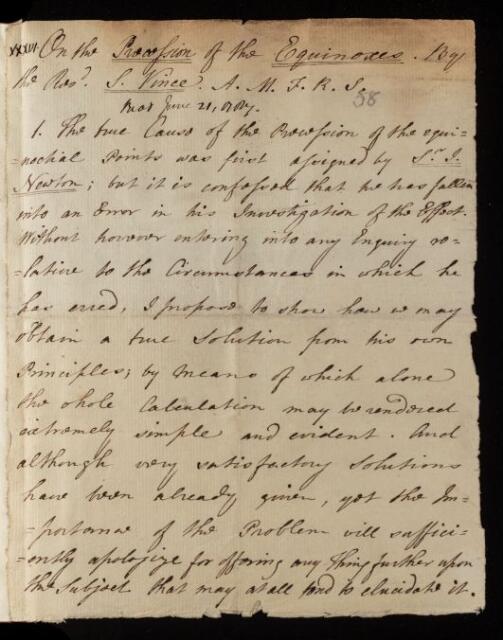 XXXVI. On the Precession of the Equinoxes. By
the Revd. S. Vince. A. M. F. R. S.
Read June 21, 1787.
58
1. The true Cause of the Precession of the equi-
=noctial Points was first assigned by Sr. I.
Newton; but it is confessed that he has fallen
into an Error in his Investigation of the Effect.
Without however entering into any Enquiry re-
=lative to the Circumstances in which he
has erred, I propose to show how we may
obtain a true Solution from his own
Principles; by means of which alone
the whole Calculation may be rendered
extremely simple and evident. And
although very satisfactory Solutions
have been already given, yet the Im-
=portance of the Problem will suffici-
=ently apologize for offering any thing further upon
the Subject that may at all tend to elucidate it.